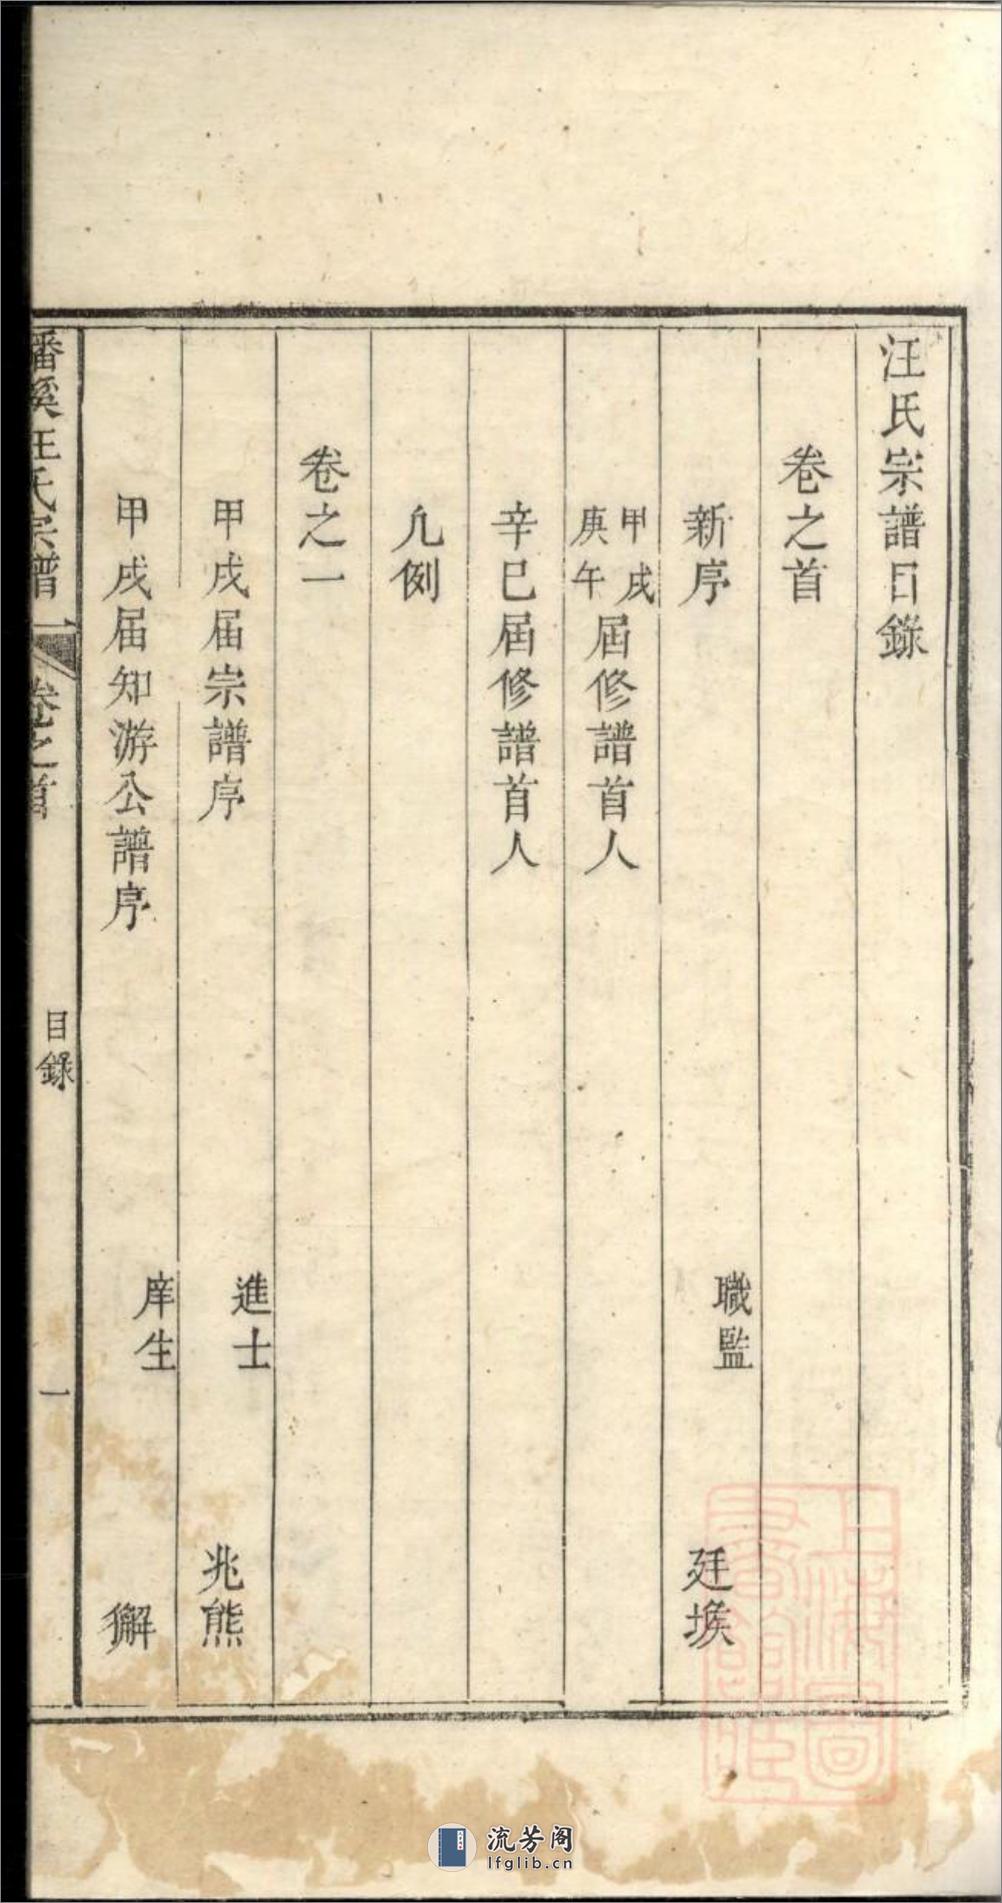 汪氏宗譜目錄
卷之首
新序 職監 廷堠
甲戌庚午屆修譜首人
辛巳屆修譜首人
凡例
卷之一
甲戌届宗譜序 進士 兆熊
甲戌届知游公譜序 庠生 獬
潘溪汪氏宗譜 卷之首 目錄 一
上海圖書館藏
流芳阁
lfglib.cn